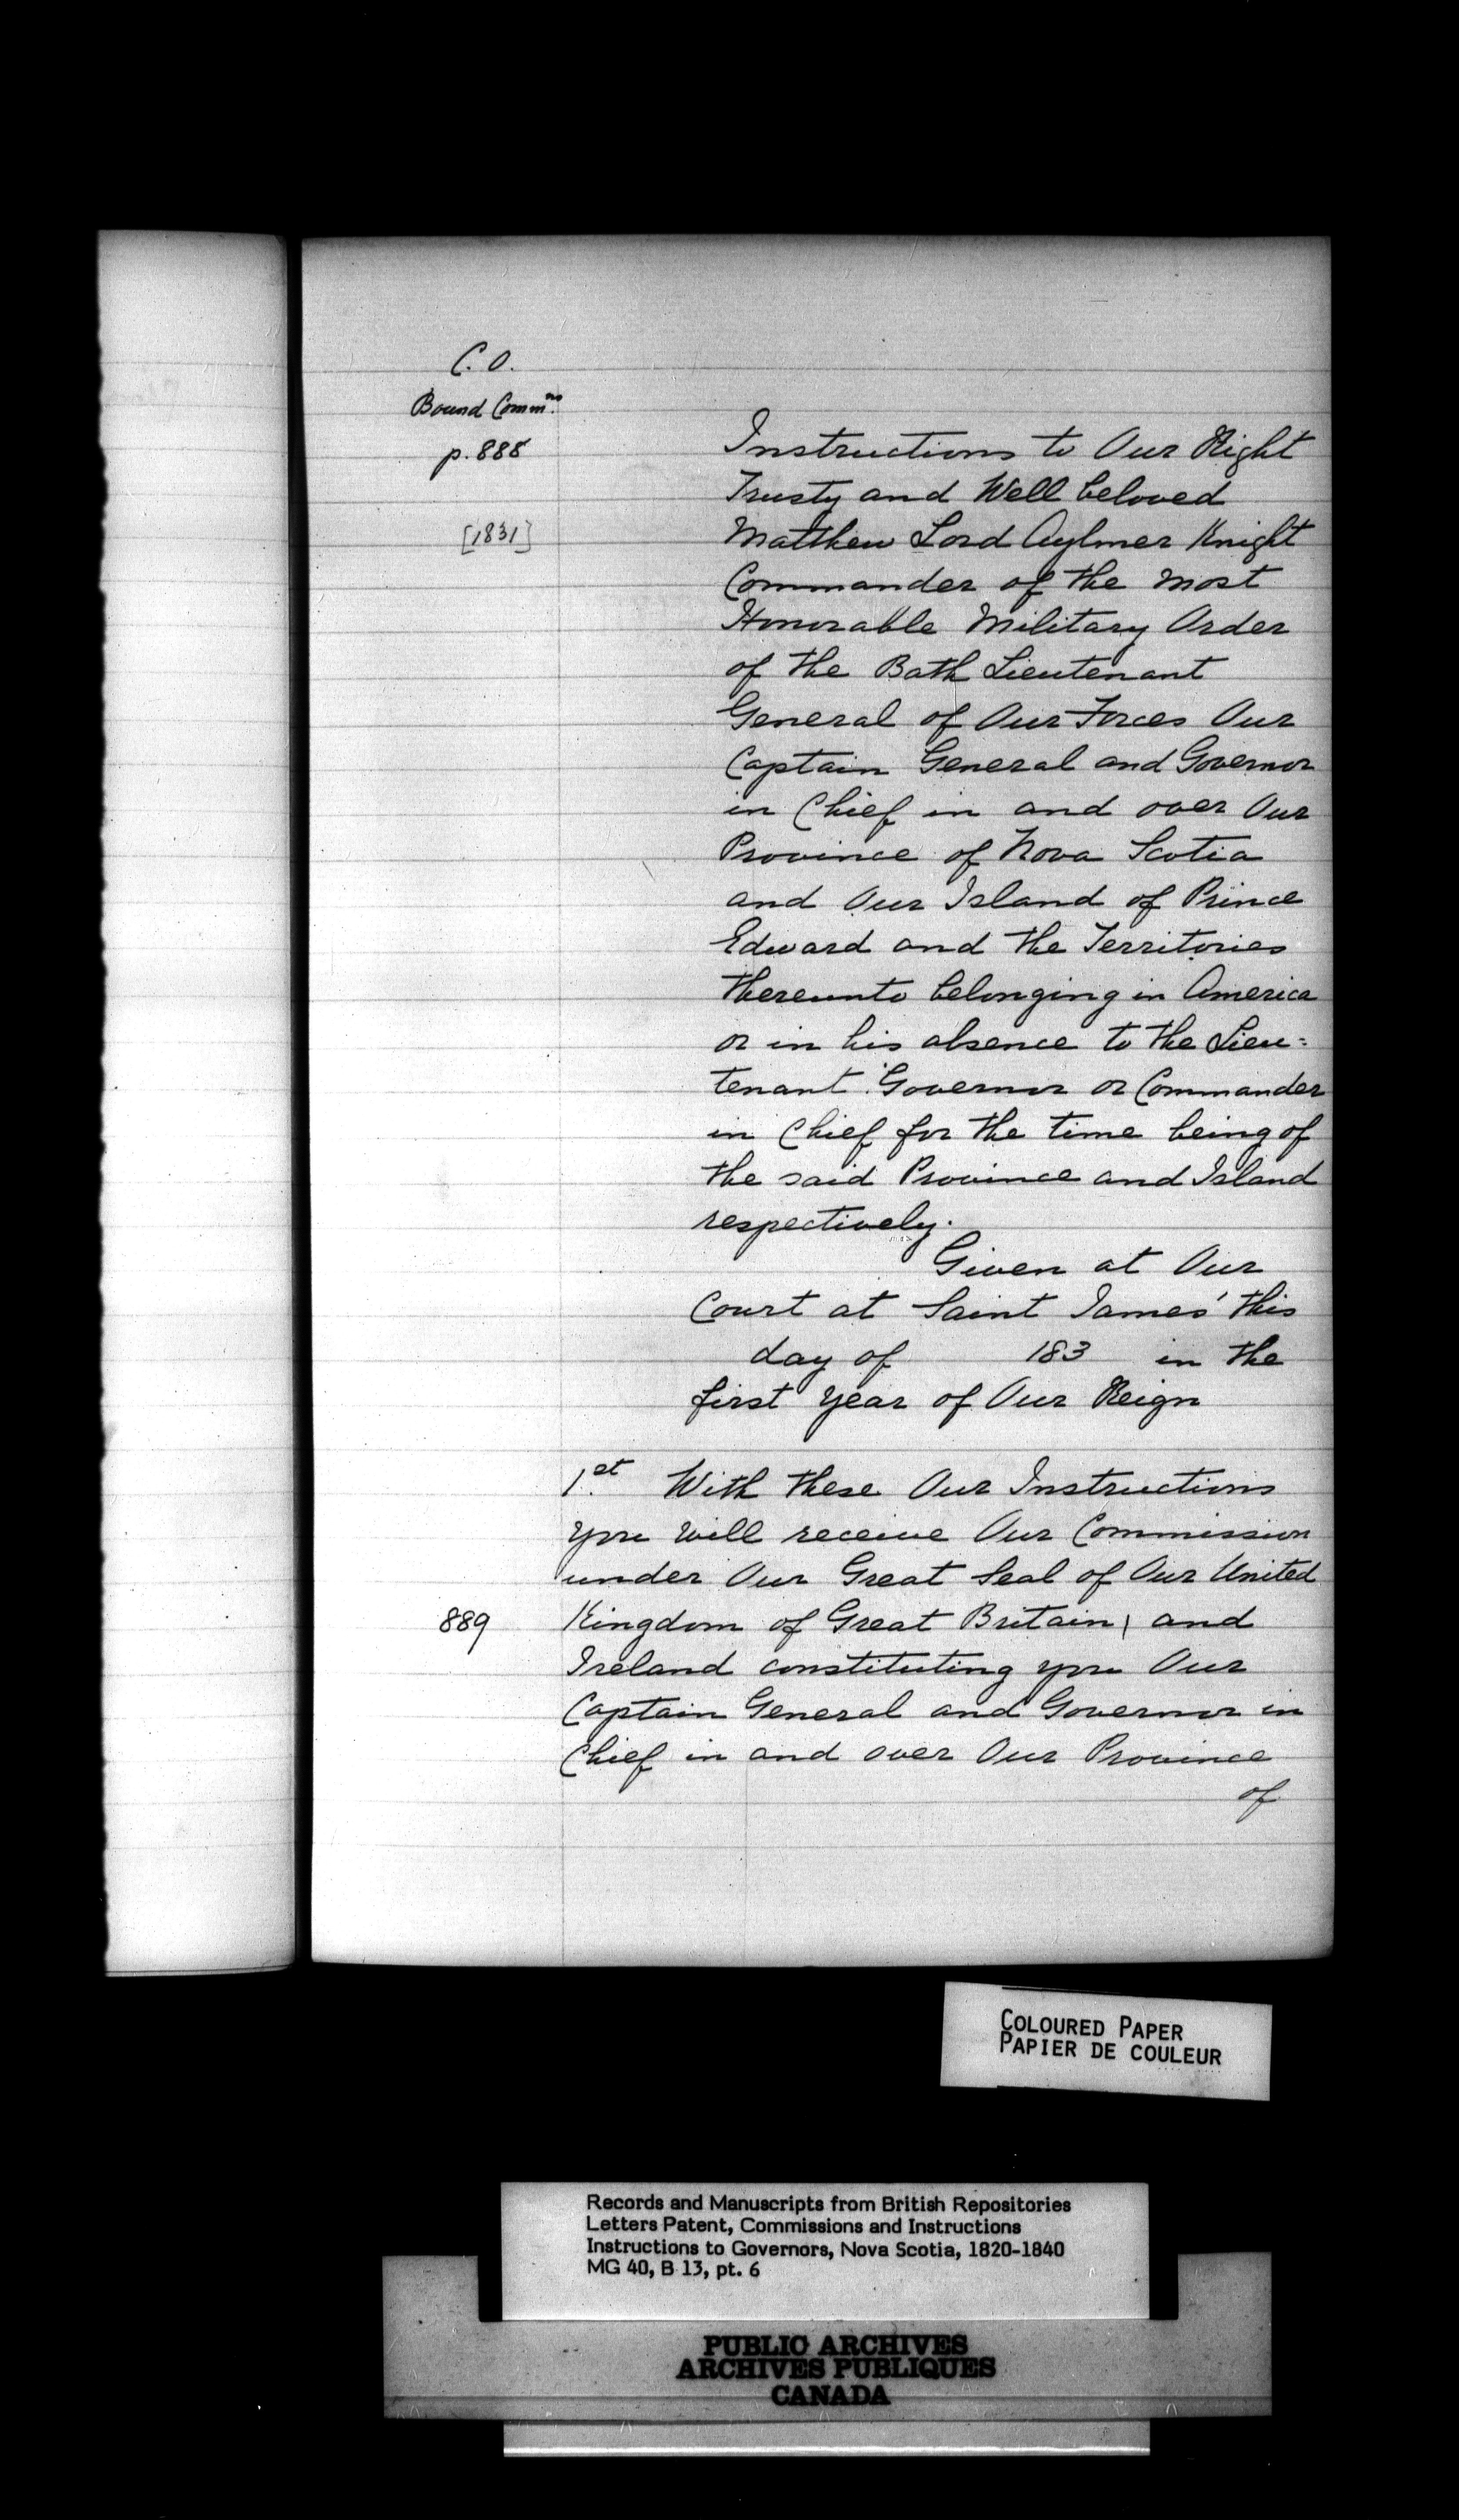 C. O.
Bound Comm.ns
p. 888
[1831]
Instructions to Our Right
Trusty and Well beloved
Matthew Lord Aylmer Knight
Commander of the most
Honorable Military Order
of the Bath Lieutenant
General of Our Forces Our
Captain General and Governor
in Chief in and over Our
Province of Nova Scotia
and Our Island of Prince
Edward and the Territories
thereunto belonging in America
or in his absence to the Lieu=
tenant Governor or Commander
in Chief for the time being of
the said Province and Island
respectively.
Given at Our
Court at Saint James' this
day of 183 in the
first year of Our Reign
1.st With these Our Instructions
you will receive Our Commission
under Our Great Seal of Our United
889 Kingdom of Great Britain \ and
Ireland constituting you Our
Captain General and Governor in
Chief in and over Our Province
of
COLOURED PAPER
PAPIER DE COULEUR
Records and Manuscripts from British Repositories
Letters Patent, Commissions and Instructions
Instructions to Governors, Nova Scotia, 1820-1840
MG 40, B 13, pt. 6
PUBLIC ARCHIVES
ARCHIVES PUBLIQUES
CANADA